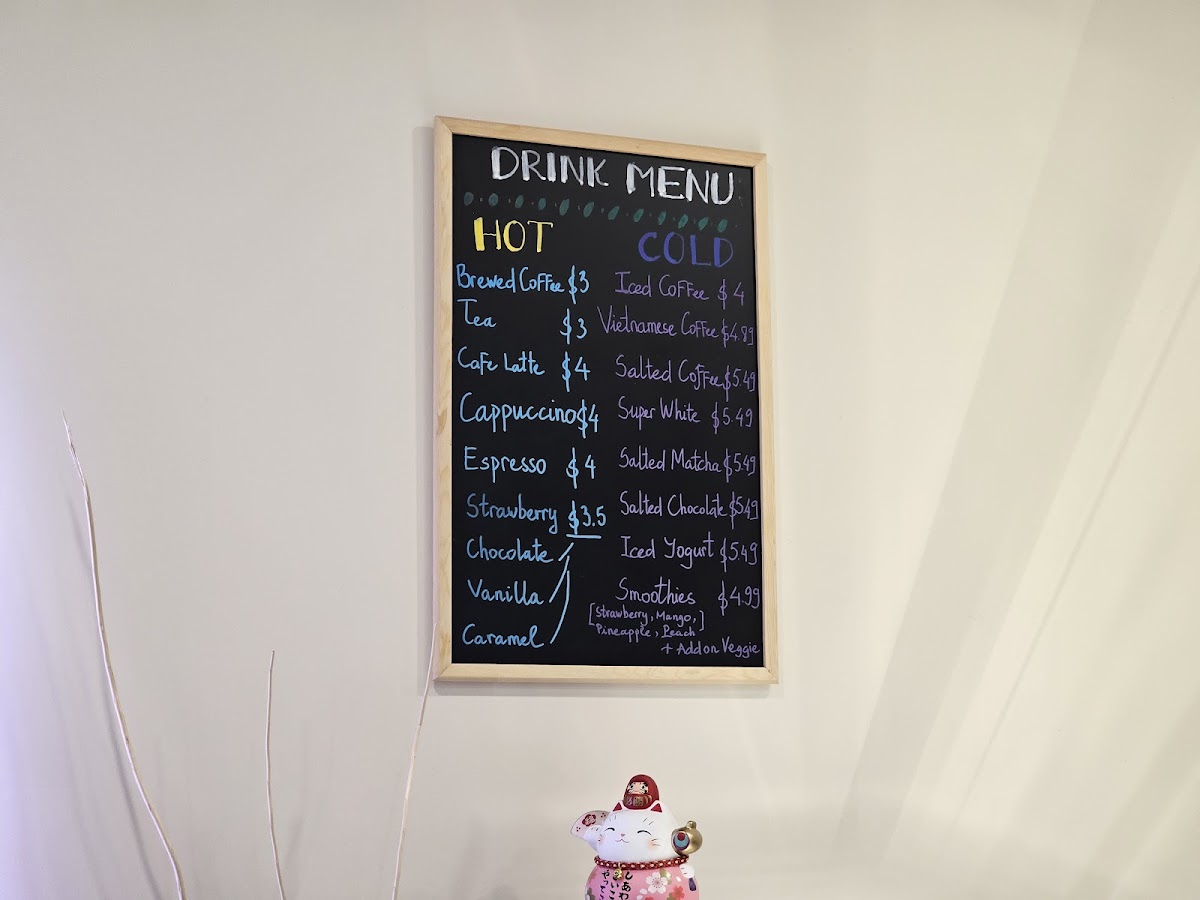 DRINK MENU
HOT
Brewed Coffee $3
Tea $3
Cafe Latte $4
Cappuccino $4
Espresso $4
Strawberry $3.5
Chocolate
Vanilla
Caramel
COLD
Iced Coffee $4
Vietnamese Coffee $4.89
Salted Coffee $5.49
Super White $5.49
Salted Matcha $5.49
Salted Chocolate $5.49
Iced Yogurt $5.49
Smoothies $4.99
[Strawberry, Mango,
Pineapple, Peach]
+ Add on Veggie
しあわ